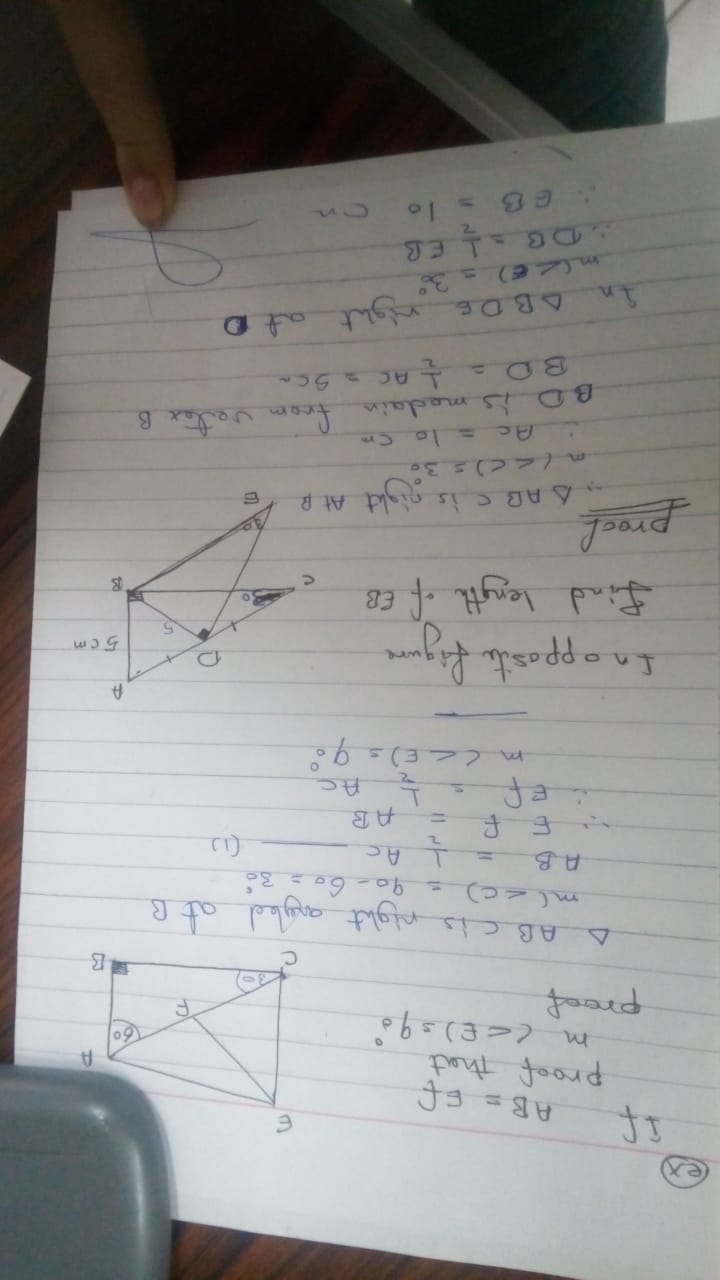 ex
If AB = EF
proof that
m (<E) = 90°
proof
E
A
60
F
30
C
B
Δ ABC is right angled at B
m(<C) = 90 - 60 = 30°
AB = 1/2 AC —— (1)
∵ EF = AB
∴ EF = 1/2 AC
m(<E) = 90°
In opposite figure
find length of EB
A
D
5cm
5
B
30
C
30
E
proof
∵ Δ ABC is right at B
m(<C) = 30°
∴ AC = 10 cm
BD is madain from vertex B
BD = 1/2 AC = 5cm
In Δ BDE right at D
m(<E) = 30°
∴ DB = 1/2 EB
∴ EB = 10 cm